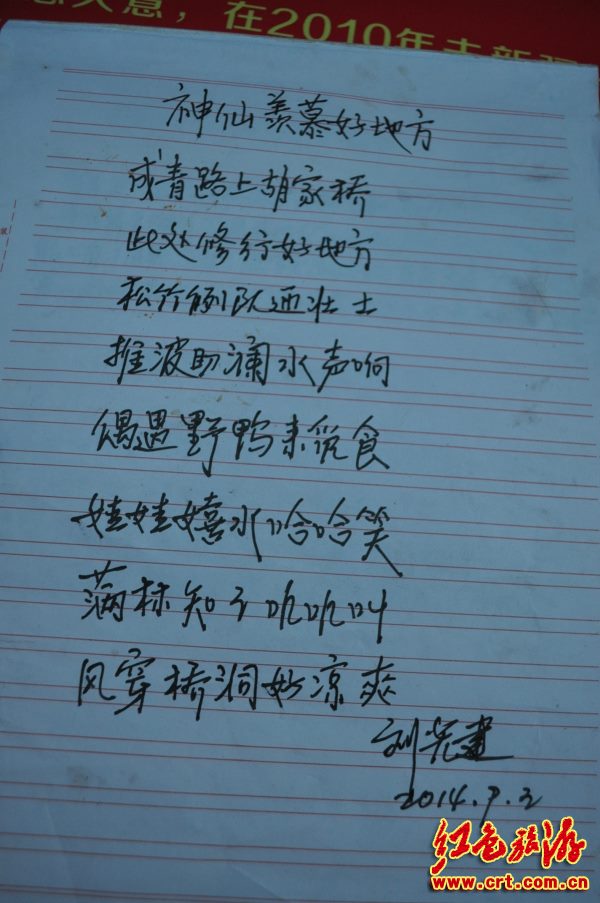 在2010年
神仙羡慕好地方
成青路上胡家桥
此处修行好地方
松竹例队迊壮士
推波助澜水声响
偶遇野鸭来觅食
娃娃嬉水哈哈笑
满林知了吼吼叫
风穿桥洞好凉爽
刘光建
2014.7.2
红色旅游
www.crt.com.cn